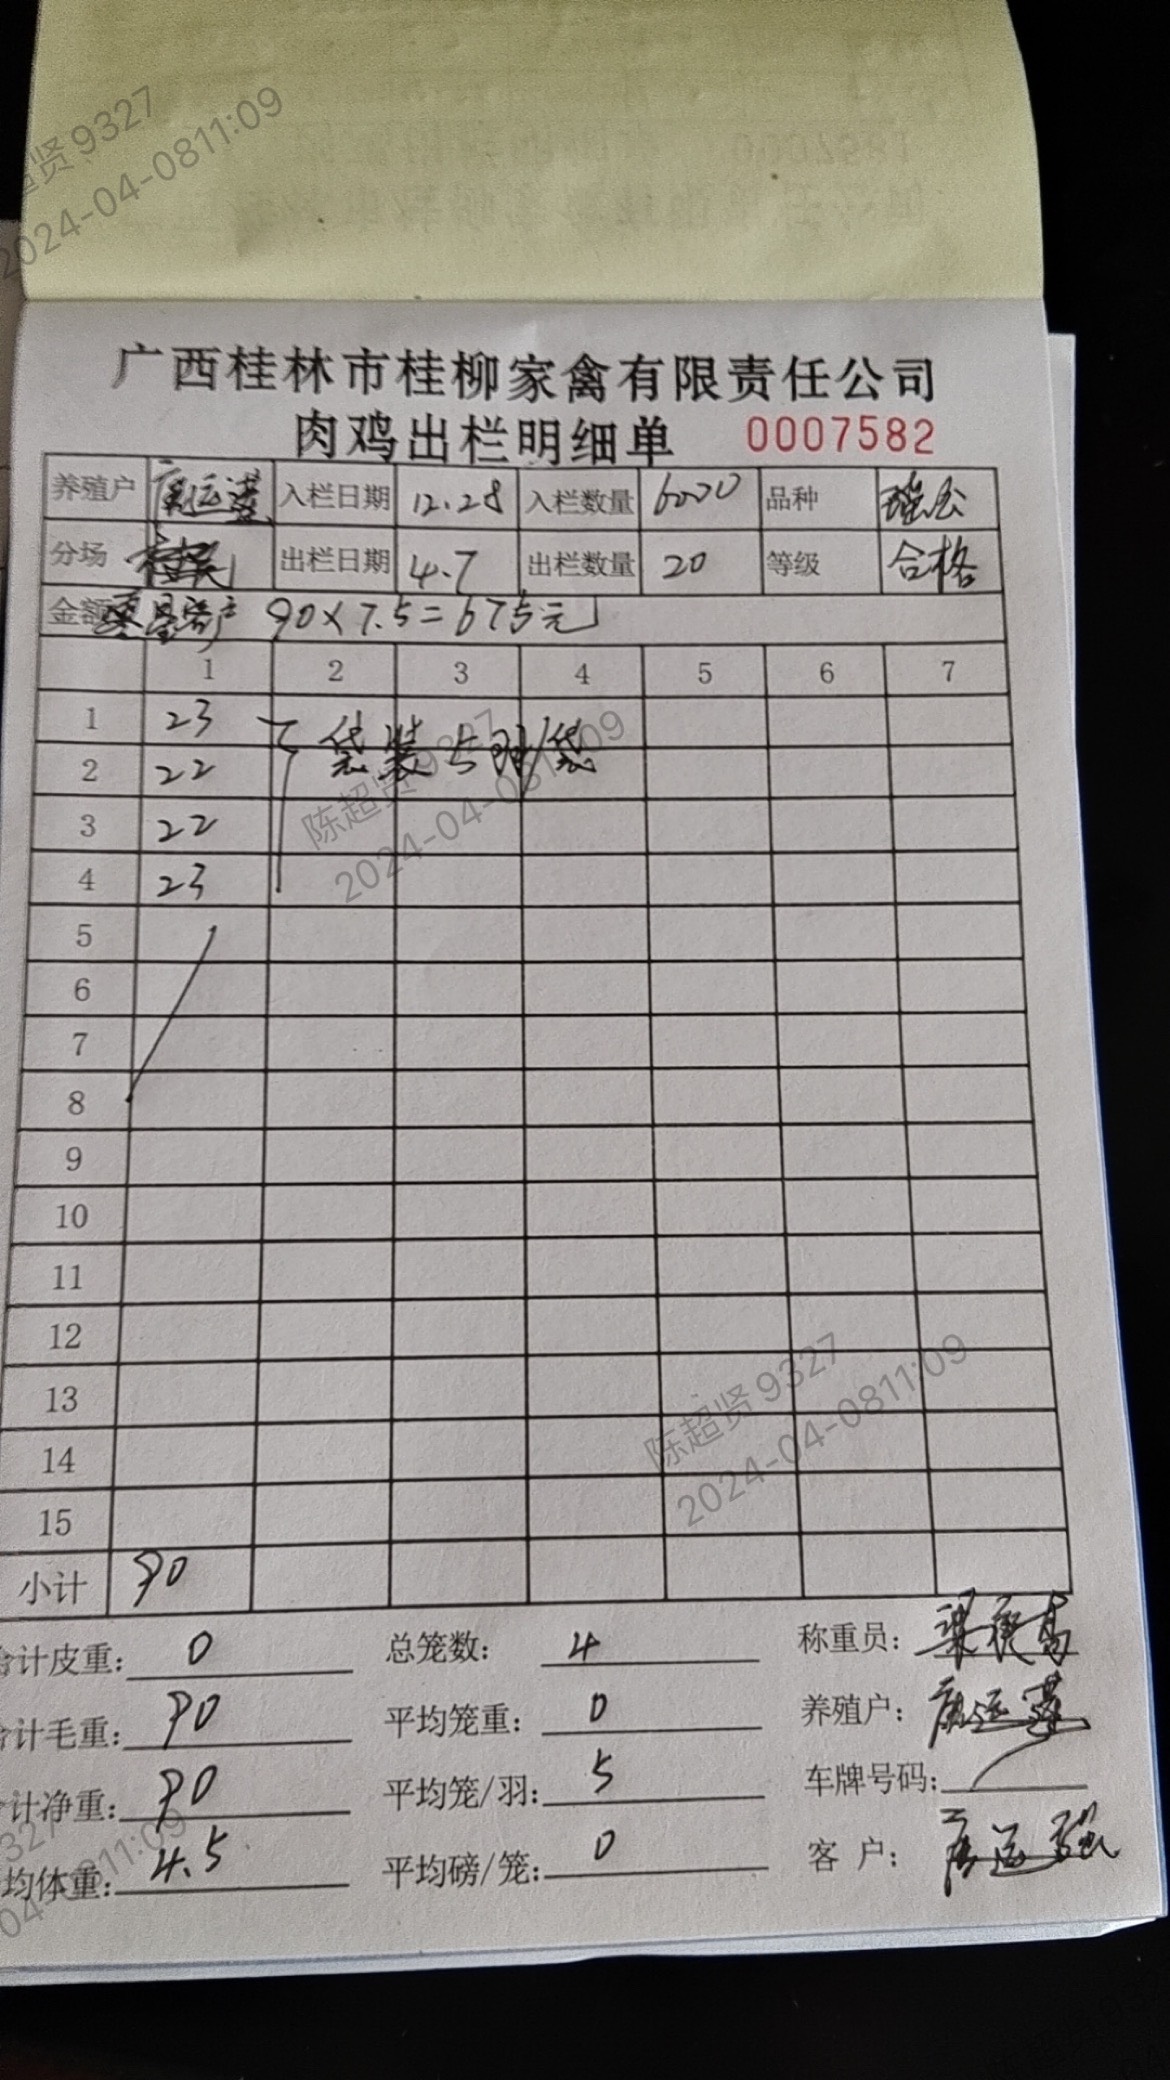 陈超贤 9327
2024-04-08 11:09
广西桂林市桂柳家禽有限责任公司
肉鸡出栏明细单 0007582
养殖户 入栏日期 12.28 入栏数量 6000 品种
分场 出栏日期 4.7 出栏数量 20 等级 合格
金额 客户 90×7.5=675元
1 2 3 4 5 6 7
1 23 袋装5羽/袋
2 22
3 22
4 23
陈超贤 9327
2024-04-08 11:09
5
6
7
8
9
10
11
12
13
14
15
陈超贤 9327
2024-04-08 11:09
小计 90
合计皮重: 0 总笼数: 4 称重员:
合计毛重: 90 平均笼重: 0 养殖户:
合计净重: 90 平均笼/羽: 5 车牌号码:
均体重: 4.5 平均磅/笼: 0 客 户: